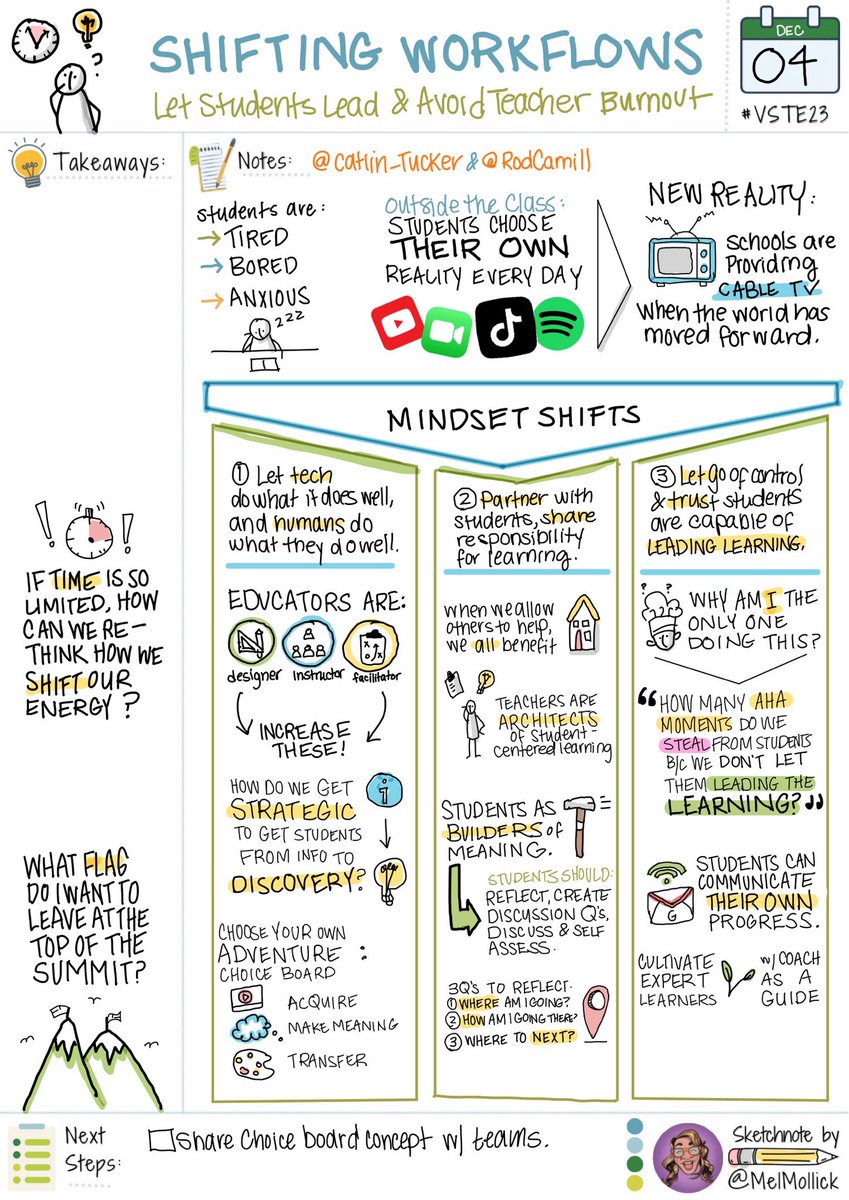 SHIFTING WORKFLOWS
Let Students Lead & Avoid Teacher Burnout
DEC
04
#VSTE23
Takeaways:
Notes: @Catlin_Tucker & @RodCamill
students are:
→ TIRED
→ BORED
→ ANXIOUS
zzz
Outside the Class:
STUDENTS CHOOSE
THEIR OWN
REALITY EVERY DAY
NEW REALITY:
Schools are
Providing
CABLE TV
When the world has
moved forward.
MINDSET SHIFTS
① Let tech
do what it does well,
and humans do
what they do well.
EDUCATORS ARE:
designer instructor facilitator
INCREASE
THESE!
HOW DO WE GET
STRATEGIC
TO GET STUDENTS
FROM INFO TO
DISCOVERY?
i
CHOOSE YOUR OWN
ADVENTURE :
CHOICE BOARD
ACQUIRE
MAKE MEANING
TRANSFER
② Partner with
students, share
responsibility
for learning.
when we allow
others to help,
we all benefit
TEACHERS ARE
ARCHITECTS
of student-
centered learning
STUDENTS AS
BUILDERS of
MEANING.
STUDENTS SHOULD:
REFLECT, CREATE
DISCUSSION Q's,
DISCUSS & SELF
ASSESS.
3Q's TO REFLECT.
① WHERE AM I GOING?
② HOW AM I GOING THERE?
③ WHERE TO NEXT?
③ Let go of control
& trust students
are capable of
LEADING LEARNING.
WHY AM I THE
ONLY ONE
DOING THIS?
"HOW MANY AHA
MOMENTS DO WE
STEAL FROM STUDENTS
B/C WE DON'T LET
THEM LEADING THE
LEARNING?"
STUDENTS CAN
COMMUNICATE
THEIR OWN
PROGRESS.
G
CULTIVATE
EXPERT
LEARNERS
w/ COACH
AS A
GUIDE
IF TIME IS SO
LIMITED, HOW
CAN WE RE-
THINK HOW WE
SHIFT OUR
ENERGY?
WHAT FLAG
DO I WANT TO
LEAVE AT THE
TOP OF THE
SUMMIT?
Next
Steps:
Share Choice board concept w/ teams.
Sketchnote by
@MelMollick